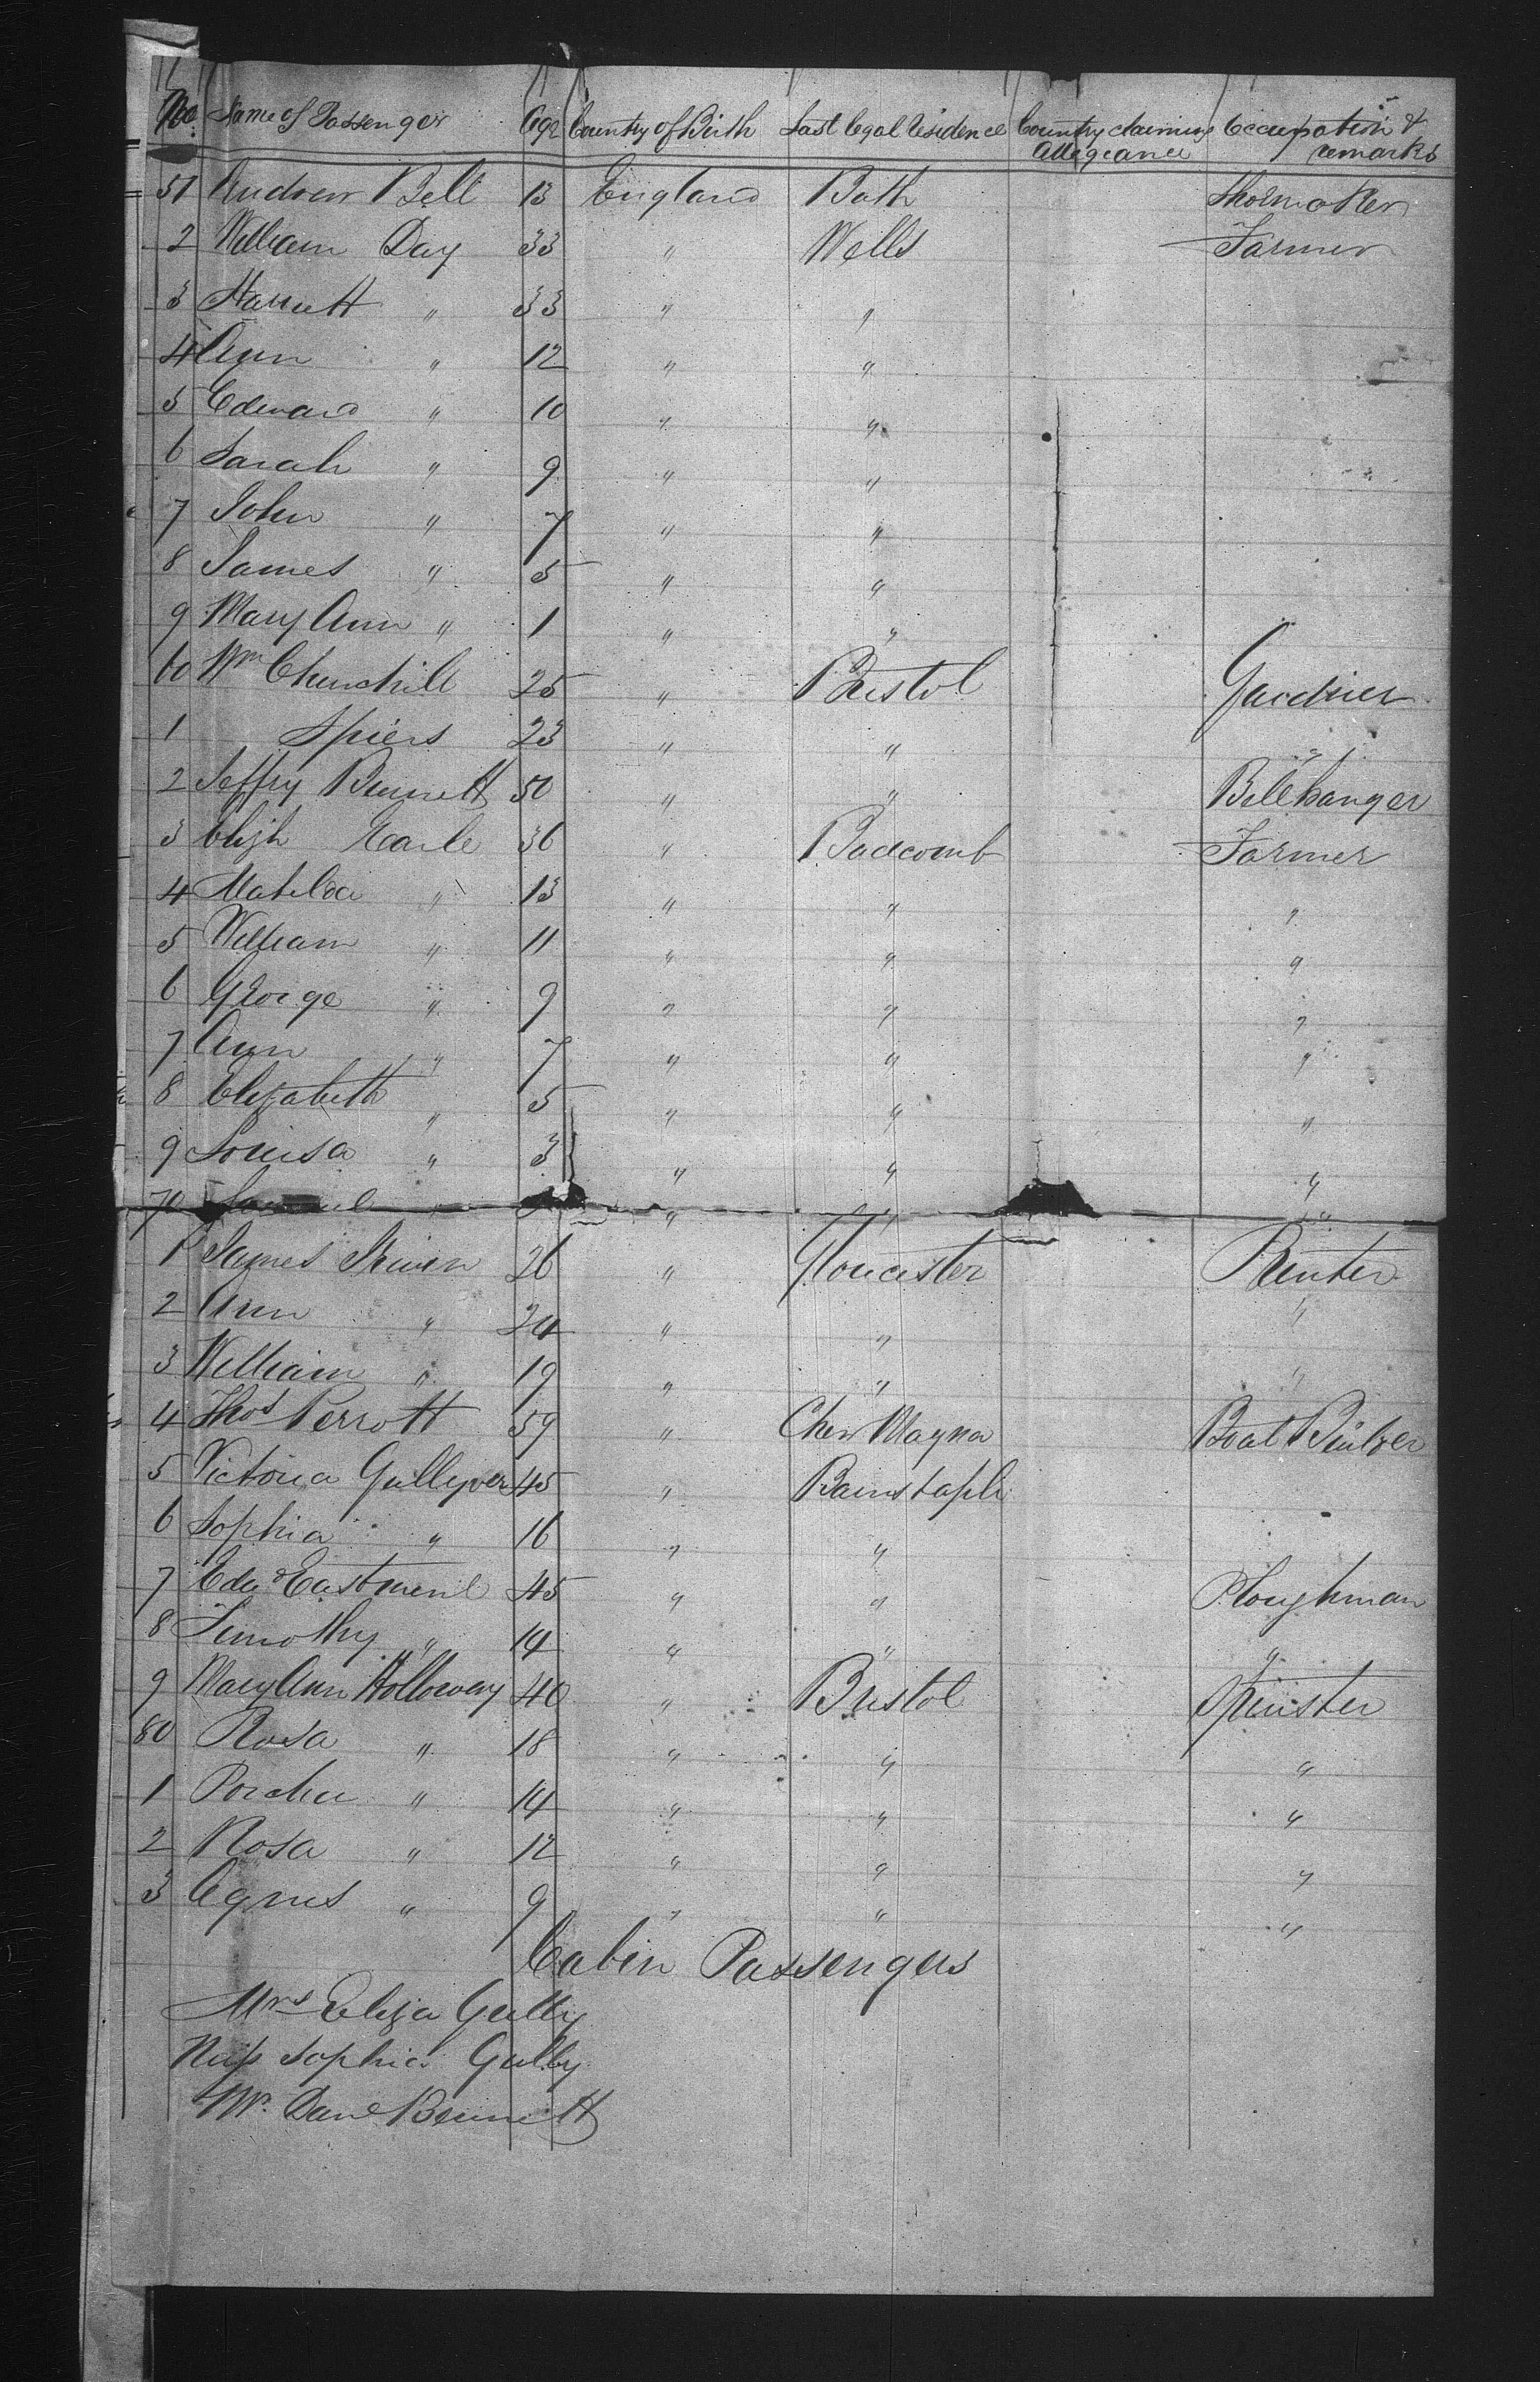 No. Name of Passenger Age Country of Birth Last legal residence Country claiming Allegeance Occupation & remarks
51 Andrew Bell 13 England Bath Shoemaker
2 William Day 33 " Wells Farmer
3 Harriett " 33 " "
4 Ann " 12 " "
5 Edward " 10 " "
6 Sarah " 9 " "
7 John " 7 " "
8 James " 5 " "
9 Mary Ann " 1 " "
60 Wm Churchill 25 " Bristol Gardner
1 Spiers 23 " " "
2 Jeffry Bennett 50 " " Bellhanger
3 Elijh Earle 36 " Badcomb Farmer
4 Matilda " 13 " " "
5 William " 11 " " "
6 George " 9 " " "
7 Ann " 7 " " "
8 Elizabeth " 5 " " "
9 Louisa " 3 " " "
70 Samuel " " " "
1 James 26 " Gloucester
2 Ann " 24 " " "
3 William " 19 " " "
4 Thos Perrott 59 " Chew Magna Boat Builder
5 Victoria Gullyver 45 " Barnstaple
6 Sophia " 16 " "
7 Edwd Eastment 45 " " Ploughman
8 Timothy " 14 " " "
9 Mary Ann Holloway 40 " Bristol Spinster
80 Rosa " 18 " " "
1 Porcha " 14 " " "
2 Rosa " 12 " " "
3 Agnes " 9 " " "
Cabin Passengers
Mrs Eliza Gully
Miss Sophia Gully
Mr. Danl Bennett